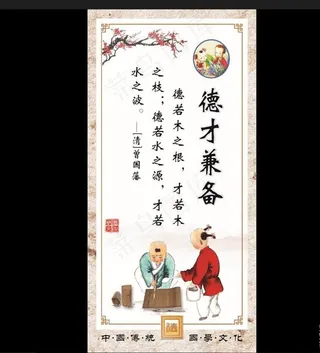 德才兼备
德若木之根,才若木
之枝;德若水之源,才若
水之波。——[清]曾国藩
·中·國·傳·統·國·學·文·化·